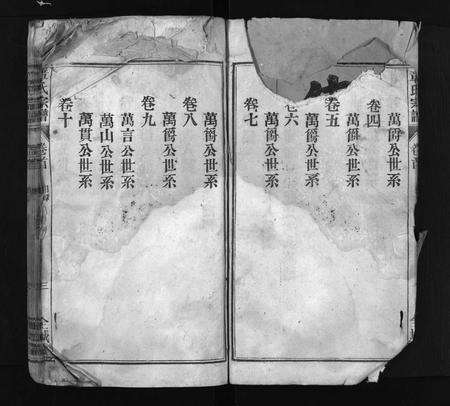 萬爵公世系
卷四
萬爵公世系
卷五
萬爵公世系
卷六
萬爵公世系
卷七
萬爵公世系
卷八
萬爵公世系
卷九
萬言公世系
萬山公世系
萬貫公世系
卷十
氏宗譜
卷首
三